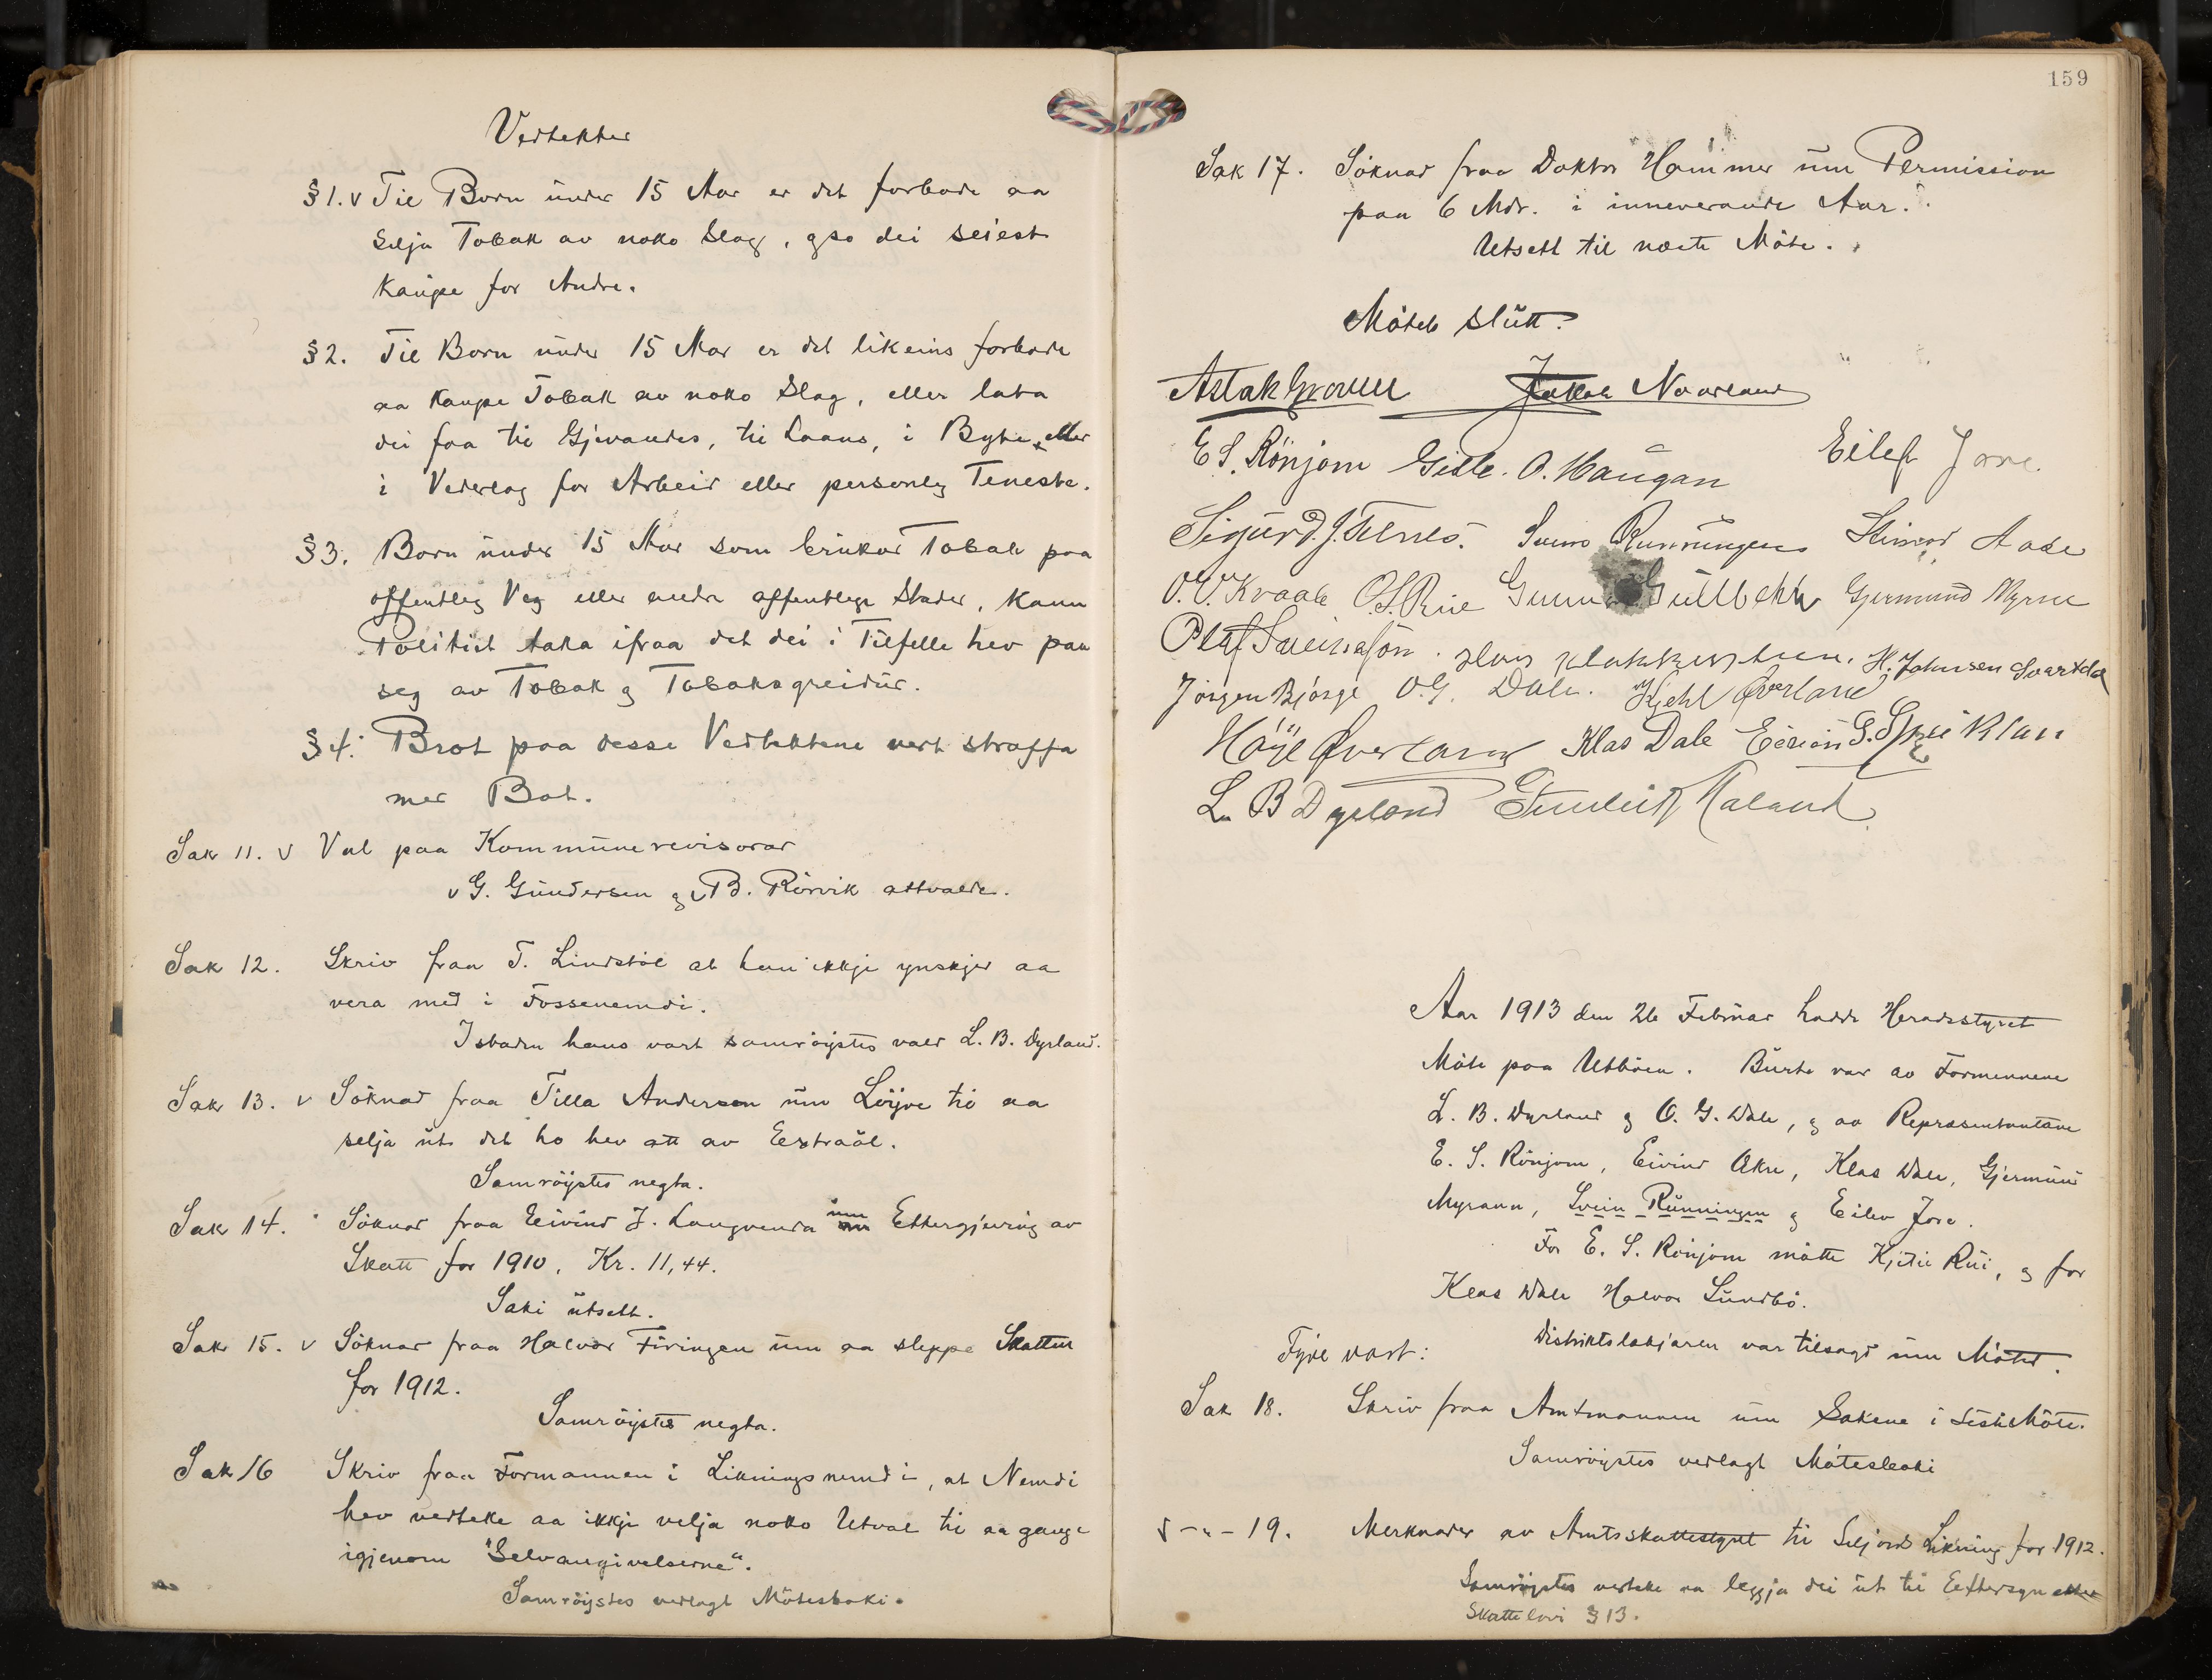 Vedtekter
§1. v Til Born under 15 Aar er det forbode aa
selja Tobak av noko Slag, gso dei seiest
kaupe for Andre.
§2. Til Born under 15 Aar er det likeins forbode
aa kaupe Tobak av noko Slag, eller lata
dei faa til Gjevandes, til Laans, i Byte eller
i Vederlag for Arbeid eller personleg Teneste.
§3. Born under 15 Aar som brukar Tobak paa
offentleg Veg eller andre offentlege Stader, kann
Politiet taka ifraa det dei i Tilfelle hev paa
seg av Tobak og Tobaksgreidur.
§4. Brot paa desse Vedtektene vert straffa
med Bot.
Sak 11. v Val paa Kommunerevisorar
v G. Gundersen og v B. Rörvik attvalde.
Sak 12. Skriv fraa T. Lindstöl at han ikkji ynskjer aa
vera med i Fossenemdi.
Istaden hans vart samröystes vald L. B. Dyrland.
Sak 13. v Söknad fraa Tilla Andersen um Löyve til aa
selja ut det ho hev att av Extraöl.
Samröystes negta.
Sak 14. Söknad fraa Eivind J. Langvenda um Ettergjeving av
Skatt for 1910, Kr. 11,44.
Saki utsett.
Sak 15. v Söknad fraa Halvor Firingen um aa sleppe Skatten
for 1912.
Samröystes negta.
Sak 16 Skriv fraa Formannen i Likningsnemdi, at Nemdi
hev vedteke aa ikkji velja noko Utval til aa gange
igjenom "Selvangivelserne".
Samröystes vedlagt Mötesboki.
159
Sak 17. Söknad fraa Doktor Hammer um Permission
paa 6 Mdr. i inneverande Aar.
Utsett til næste Möte.
Mötet slutt.
Aslak Groven Jakob Naarland
E S. Rönjom Gisle. O. Haugan Eilef Jore.
Sigurd J. Svein Runningen Steinar Aase
O. O. Kraak O. S. Rue Gunnar Gullbekk Gjermund Myrne
Olaf Sveinsson. H. Johnsen Svartdal
Jörgen Bjórge O. G. Dale. Kjetil Øverland
Höye Øverland Klas Dale
L. B Dyrland
Aar 1913 den 26 Februar hadde Heradsstyret
Möte paa Utböen. Burte var av Formennene
L. B. Dyrland og O. G. Dale, og av Repræsentantane
E. S. Rönjom, Eivind Økre, Klas Dale, Gjermund
Myrann, Svein Runningen og Eilev Jore.
For E. S. Rönjom mötte Kjetil Rui, og for
Klas Dale Halvor Sundbö.
Distriktslækjaren var tilsagd um Mötet.
Fyre vart:
Sak 18. Skriv fraa Amtmannen um Sakene i siste Möte.
Samröystes vedlagt Mötesboki
S -"- 19. Merknader av Amtsskattestyret til Seljord Likning for 1912.
Samröystes vedteke aa leggja dei ut til Ettersyn etter
Skattelovi §13.